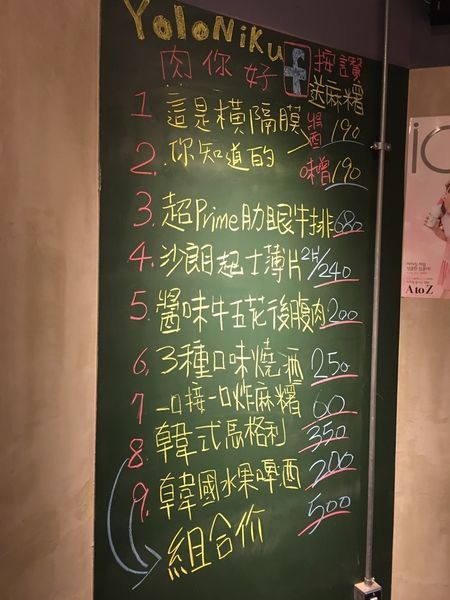 YoloNiku
肉你好 f 按讚
送麻糬
1. 這是橫隔膜 醬酒 190
2. 你知道的 味噌 190
3. 超Prime肋眼牛排 680
4. 沙朗起士薄片 2片/240
5. 醬味牛五花後腹肉 200
6. 3種口味燒酒 250
7 一口接一口炸麻糬 60
8. 韓式馬格利 350
9. 韓國水果啤酒 200
組合价 500
A to Z